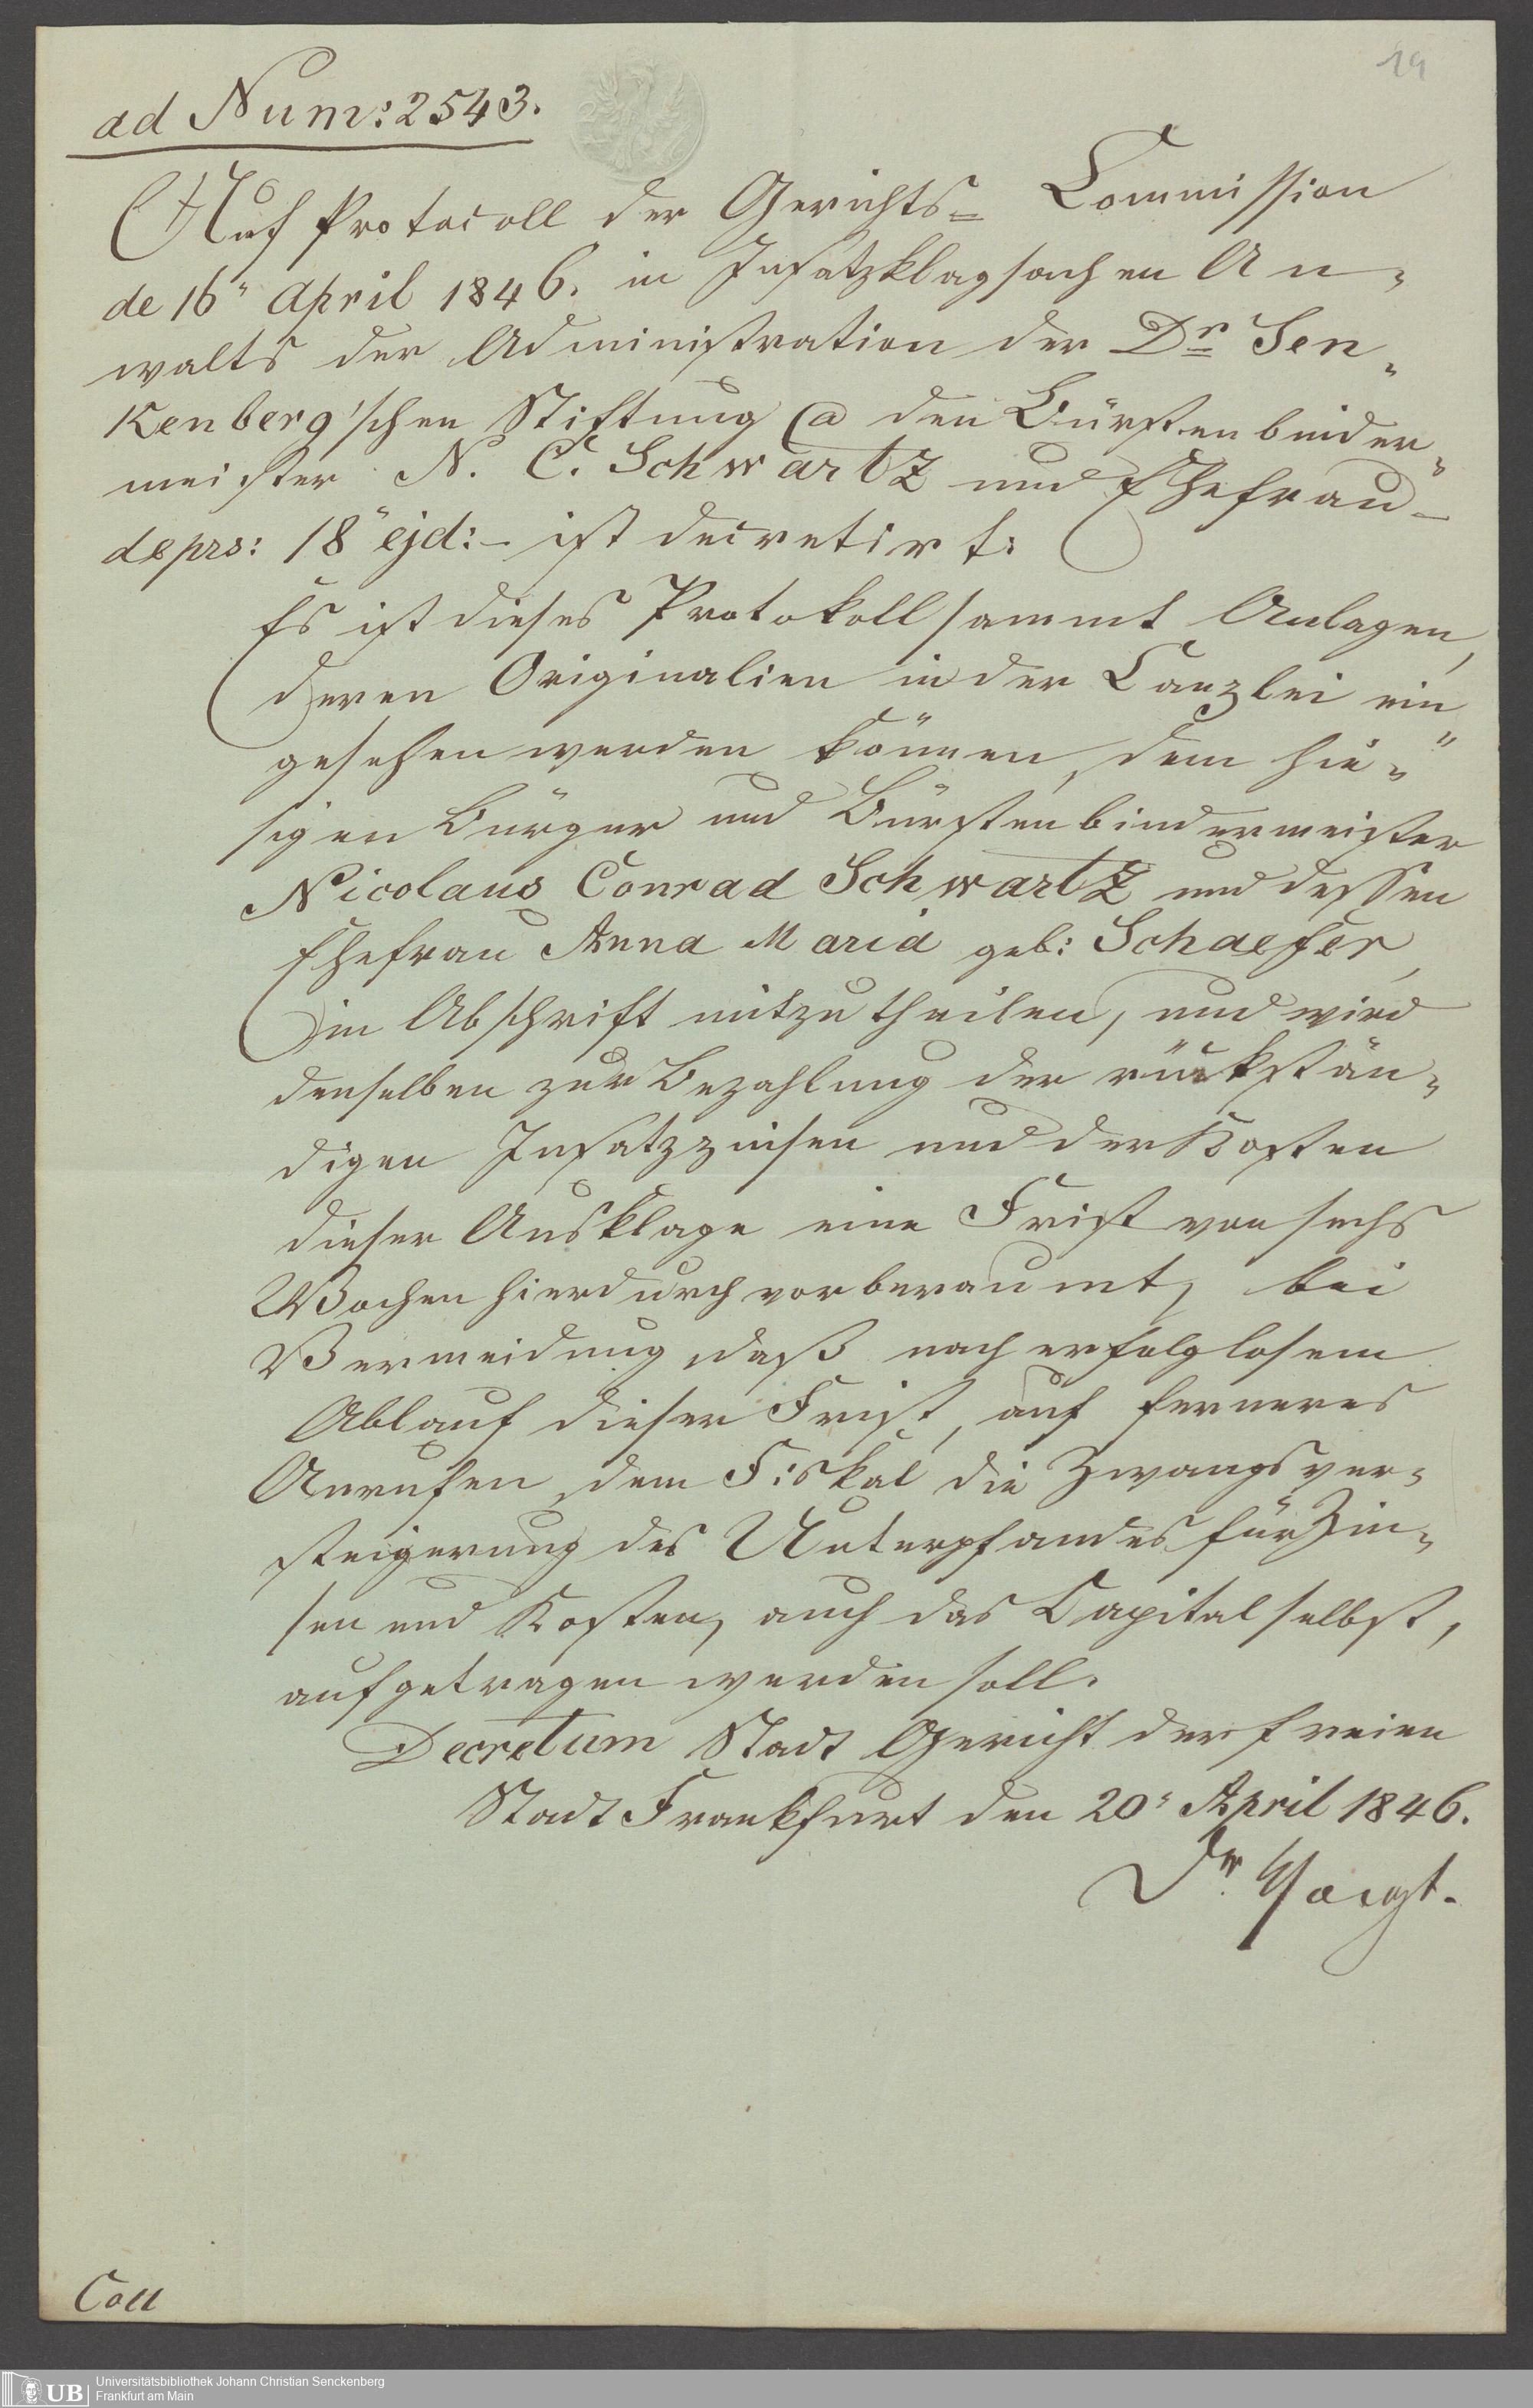 19
ad Num: 2543.
Auf Protocoll der Gerichts= Commission
de 16" April 1846. in Insatzklagsachen An-
walts der Administration der Dr Sen-
kenberg'schen Stiftung ca den Bürstenbinder-
meister N. C. Schwartz und Ehefrau -
de prs: 18" ejd: - ist decretirt:
Es ist dieses Protokoll sammt Anlagen,
deren Originalien in der Canzlei ein
gesehen werden können, dem hie-"
sigen Bürger und Bürstenbindermeister
Nicolaus Conrad Schwartz und dessen
Ehefrau Anna Maria geb: Schaefer,
in Abschrift mitzutheilen, und wird
denselben zur Bezahlung der rückstän-
digen Insatzzinsen und der Kosten
dieser Ausklage eine Frist von sechs
Wochen hierdurch vorberaumt, bei
Vermeidung, daß nach erfolglosem
Ablauf dieser Frist, auf ferneres
Anrufen, dem Fiskal die Zwangsver-
steigerung des Unterpfandes für Zin-
sen und Kosten, auch das Capital selbst,
aufgetragen werden soll.
Decretum Stadt Gericht der freien
Stadt Frankfurt den 20" April 1846.
Dr. Voigt.
Coll
UB
Universitätsbibliothek Johann Christian Senckenberg
Frankfurt am Main